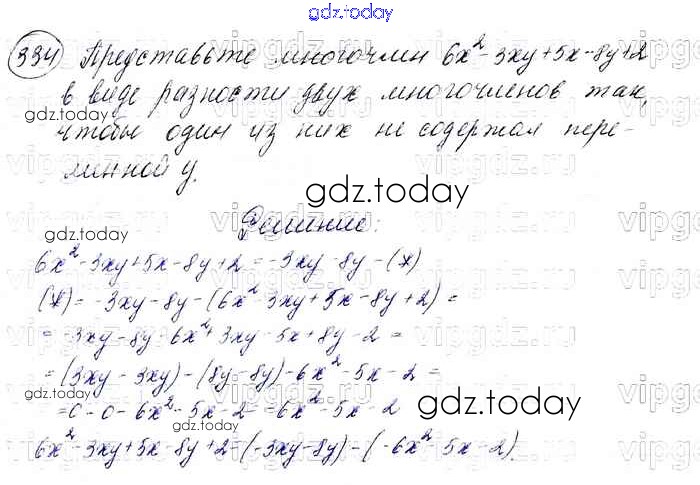 gdz.today
334 Представьте многочлен 6x² - 3xy + 5x - 8y + 2
в виде разности двух многочленов так,
gdz.today
чтобы один из них не содержал пере-
менной y.
gdz.today
gdz.today
Решение:
6x² - 3xy + 5x - 8y + 2 = -3xy - 8y - (*)
(*) = -3xy - 8y - (6x² - 3xy + 5x - 8y + 2) =
= -3xy - 8y - 6x² + 3xy - 5x + 8y - 2 =
= (3xy - 3xy) - (8y - 8y) - 6x² - 5x - 2 =
gdz.today
= 0 - 0 - 6x² - 5x - 2 = -6x² - 5x - 2
gdz.today
6x² - 3xy + 5x - 8y + 2 = (-3xy - 8y) - (-6x² - 5x - 2).